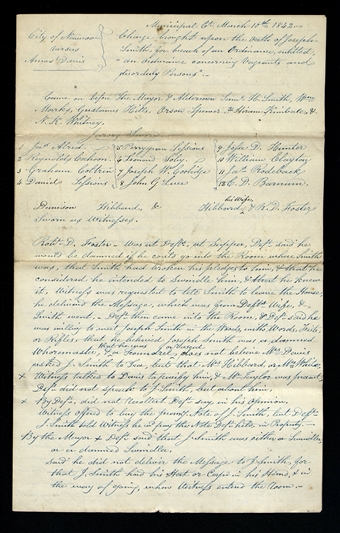 Municipal Ct. March 10th. 1843—
City of Nauvoo
versus
Amos Davis
Charge brought upon the oath of Joseph
Smith, for breach of an Ordinance, entitled,
"an ordinance concerning Vagrants and
disorderly Persons"—
Came on before The Mayor & Alderman Saml. H. Smith, Wm.
Marks, Gustavus Hills, Orson Spencer, & Hiram Kimball, &
N. K. Whitney.
Jury Sworn
1 Jas Allred
2 Reynolds Cahoon
3 Graham Coltrin
4 Daniel Sessions
5 Perrygrine Sessions
6 Truman
7 Joseph W. Coolidge
8 John G.
9 Jesse D. Hunter
11 William Clayton
11 Jas. Rodeback
12 C. D. Barnum
Dennison Hibbard &
his Wife
Hibbard, & R. D. Foster
Sworn as Witnesses.
Robt. D. Foster— Was at Defts. at Supper, Deft. said he
would be damned if he could go into the Room where Smith
was, that Smith had broken his pledges to him, & that he
considered he intended to swindle him, & that he knew
it, Witness was requested to tell Smith to leave the House
he delivered the Message, which was from Defts Wife, &
Smith went.— Deft. then came into the Room, & Deft. said he
was willing to meet Joseph Smith in the Woods, with Words, Fists,
or Rifles, that he believed Joseph Smith was a damned
Whoremaster, & a Scoundrel, does not believe Mrs Davis
asked J. Smith to Tea, but that Mrs. Hibbard or Mrs.
× Witness rather to Davis to invite him, Mr. Taylor was present,
Deft. did not speak to J. Smith, but about him,
× By Deft., did not recollect Deft. say in his opinion,
Witness offered to buy the promy. Note of J. Smith, but Deft.
J. Smith told Witness he'd pay the Note Deft. held, in Property.—
By the Mayor— Deft. said that J. Smith was either a Swindler
or a damned Swindler,
said he did not deliver the Message to J. Smith, for
that J. Smith had his Hat or Cap in his Hand, & in
the way of going, when Witness entered the Room—